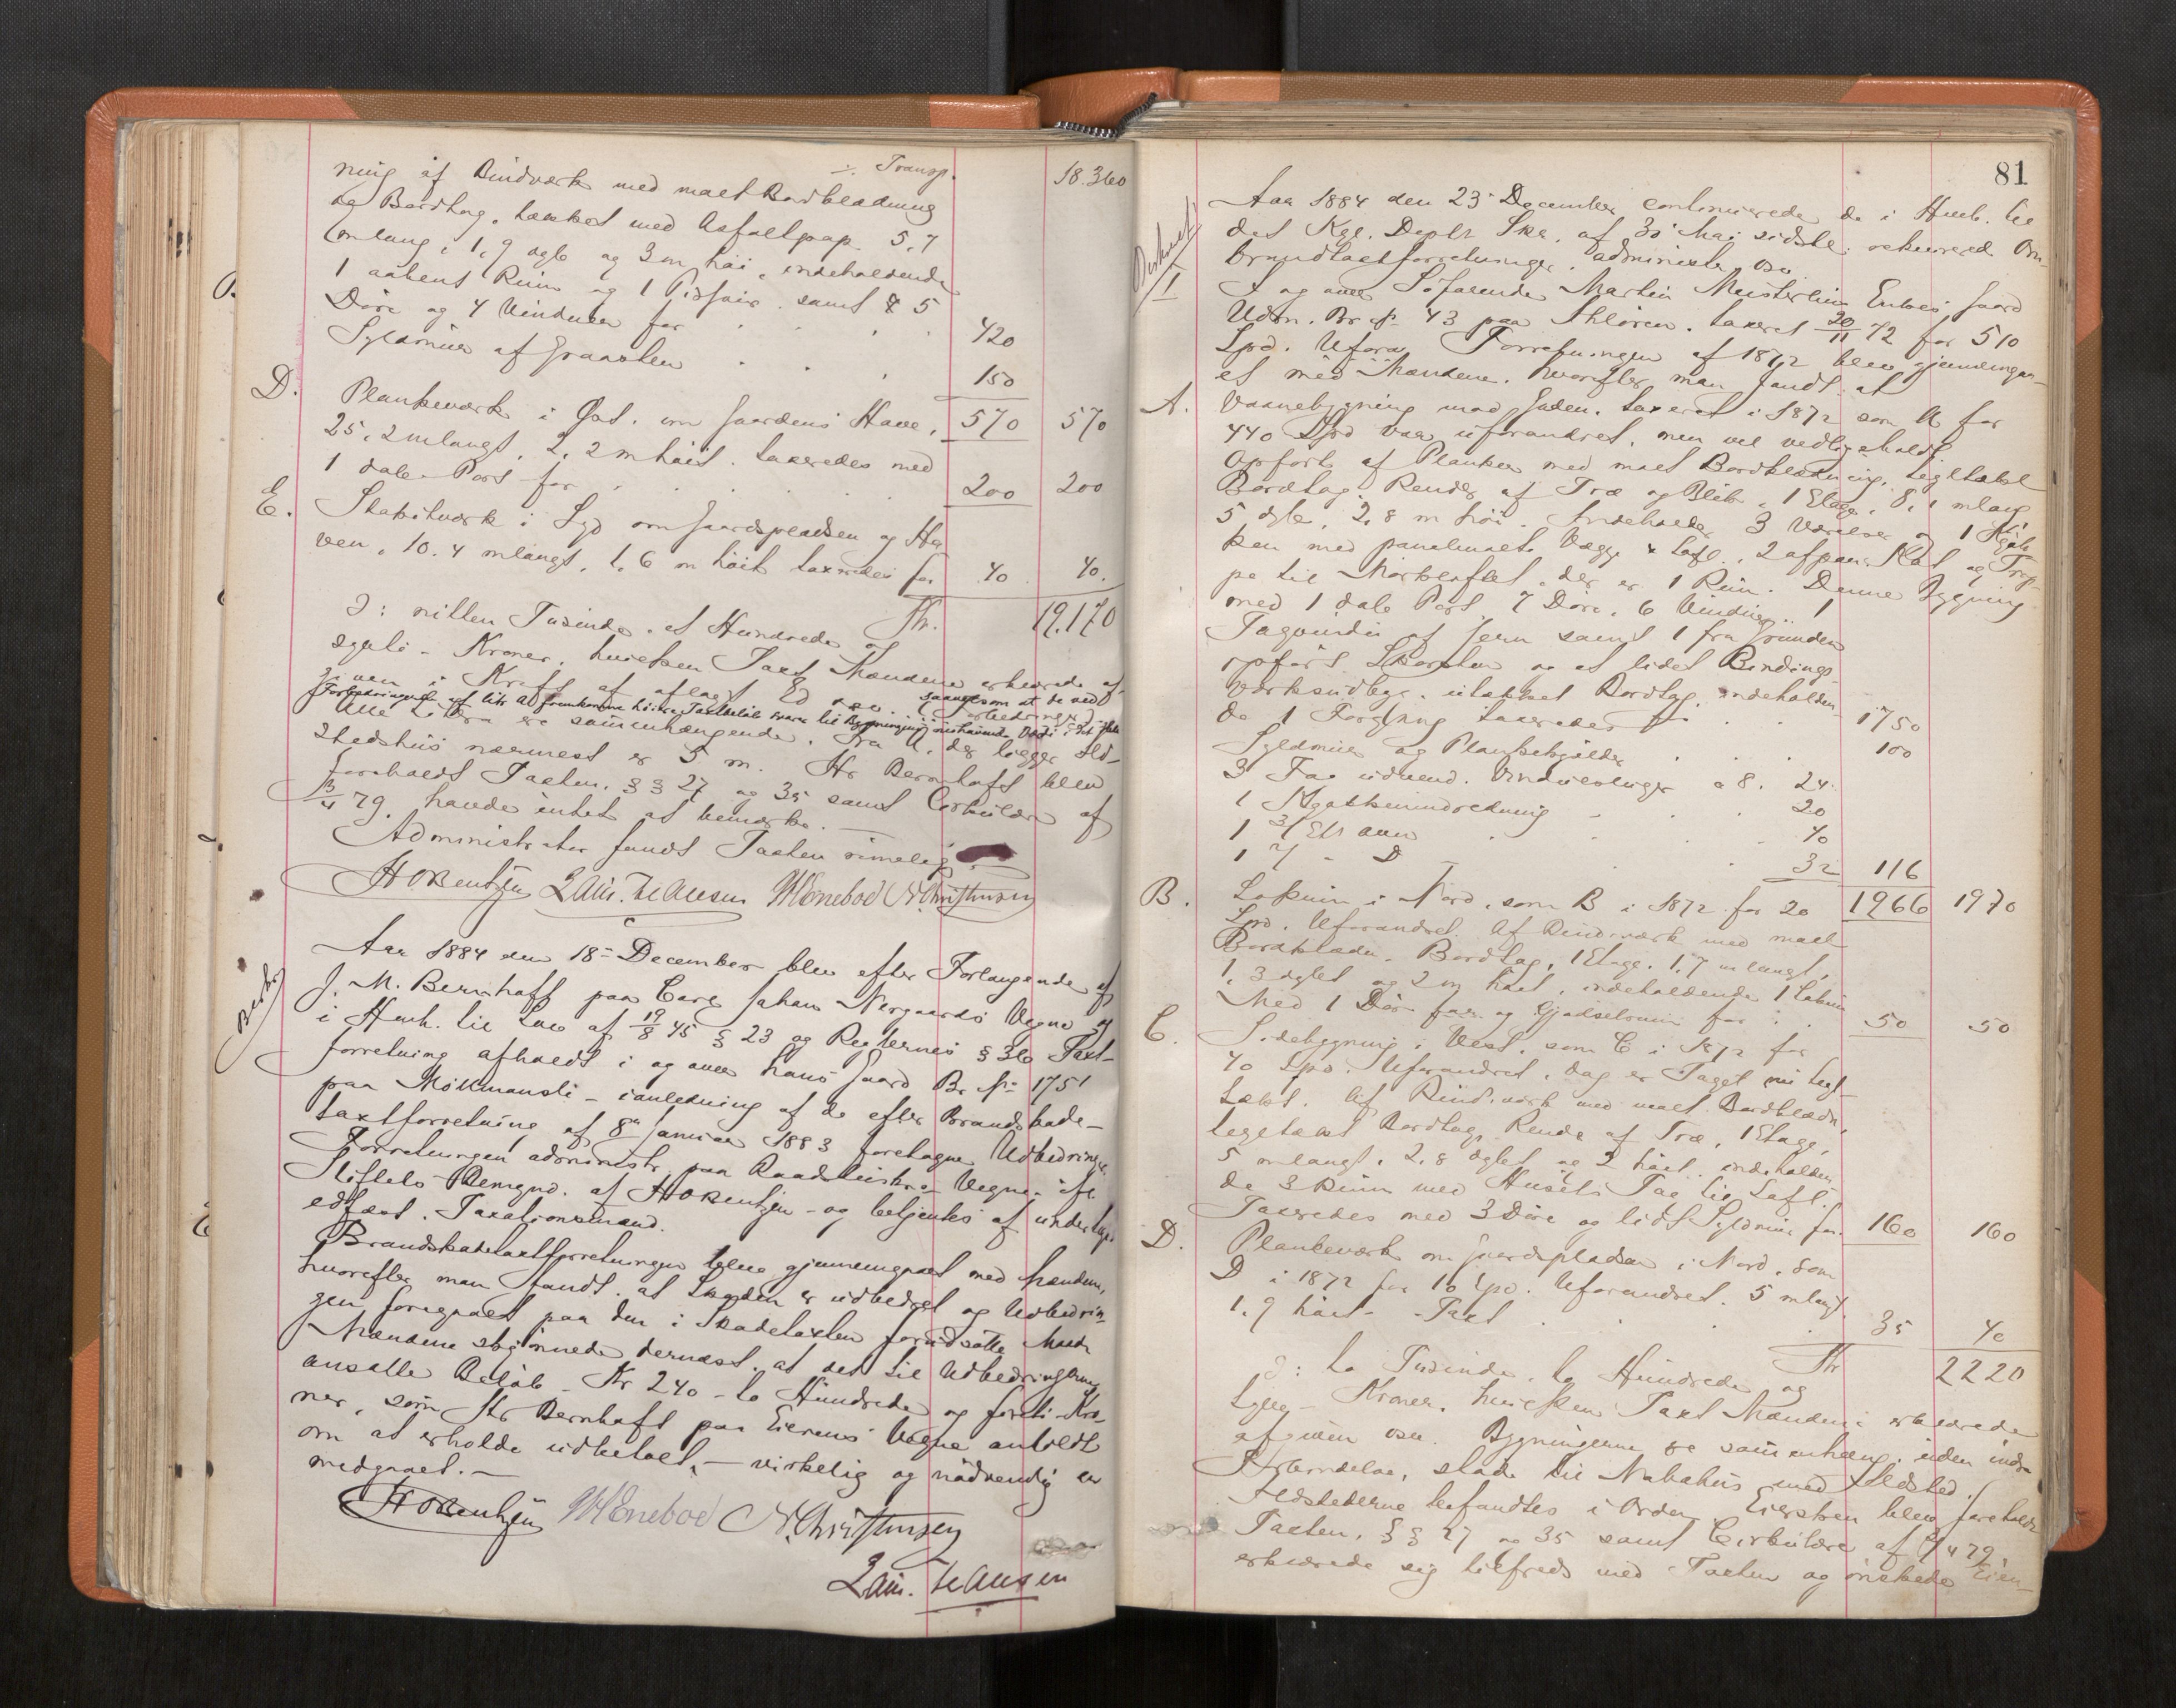 ÷ Transp. 18.360
ning af Bindværk med malet Bordklædning
og Bordtag, tækket med Asfaltpap 5,7
m lang, 1,9 dyb og 3 m høi, indeholdende
1 aabent Rum og 1 samt 5
Døre og 4 Vinduer for . . . 420
Syldmur af Graasten . . . 150
570 570
D. Plankeværk i Øst, om Gaardens Have,
25,2 m langt, 2,2 m høit, taxeredes med
1 dob. Port for . . . . 200 200
E. Stakitværk i Syd om Gaardspladsen og Ha-
ven, 10.4 m langt, 1,6 m høit taxeredes for 40 40.
Kr. 19.170
ɔ: nitten Tusinde, et Hundrede og
sytti - Kroner, hvilken Taxt Mændene erklærede af-
given i Kraft af aflagt Ed osv.
Alle Litra ere sammenhængende. Fra A, der ligger Ild-
stedshus nærmest er 5 m. Hr Bernhoft blev
foreholdt Taxten, §§ 27 og 35 samt Cirkulære af
3/4 79, havde intet at bemærke. —
Administrator fandt Taxten rimelig.
H O Bentzen Lau. Hansen N. Christensen
Aar 1884 den 18de December blev efter Forlangende af
J. M. Bernhoft paa Carl Johan Nergaards Vegne og
i Henh. til Lov af 19/8 45 § 23 og Reglernes § 36 Taxt-
forretning afholdt i og over hans Gaard Br. № 175
paa Möllmansli - i anledning af de efter Brandskade-
taxtforretning af 8de Januar 1883 foretagne Udbedringer.
Forretningen administr. paa Raadstuens Vegne ifl.
Stiftets Bemynd. af H O Bentzen - og betjentes af undertegn.
edfæst. Taxationsmænd.
Brandskadetaxtforretningen blev gjennemgaaet med Mændene,
hvorefter man fandt, at Skaden er udbedret og Udbedrin-
gen foregaaet paa den i Skadetaxten forudsatte Maade
Mændene skjønnede dernæst, at det til Udbedringerne
ansatte Beløb - Kr 240 - to Hundrede og forti - Kro-
ner, som Hr Bernhoft paa Eierens Vegne anholdt
om at erholde udbetalt, — virkelig og nødvendig er
medgaaet. —
H O Bentzen N. Christensen
Lau. Hansen
81
Aar 1884 den 23de December continuerede de i Henh. til
det Kgl. Depts Skr. af 30 Mai sidstl. rekvirered Om-
brandtaxtforretninger, administr. osv.
I og over Søfarende Martin Enkes Gaard
Udm. Br № 43 paa Ihlören, taxeret 20/11 72 for 510
Spd. Uforan. Forretningen af 1872 blev gjennemgaa-
et med Mændene, hvorefter man fandt, at
A. Vaanebygning mod Gaden, taxeret i 1872 som A for
440 Spd var uforandret, men vel vedligeholdt
Opført af Planker med malet Bordklædning, tegltækt
Bordtag, Render af Træ og Blik, 1 Etage, 8,1 m lang
5 dyb, 2,8 m høi. Indeholder 3 Værelser og 1 Kjøk-
ken med panelmalte Vægge & Loft, 2 afpan. Kot og Trap-
pe til Mørkloftet, der er 1 Rum. Denne Bygning
med 1 dob Port, 7 Døre, 6 Vinduer, 1
Tagvindu af Jern samt 1 fra Grunden
opført Skorsten og et lidet Bindings-
værksudbygg, utækket Bordtag, indeholden-
de 1 Forgang taxeredes for . . . 1750
Syldmur og Plankekjælder . . . 100
3 Fag udvend. Vinduer à 8. 24.
1 Kjøkkenindredning - . . . 20
1 3/ Et ovn . . . . 40
1 2/ - D . . . 32 116
1966 1970
B. Lokum i Nord, som B i 1872 for 20
Spd. Uforandret. Af Bindværk med malet
Bordklædn. Bordtag, 1 Etage, 1,7 m langt,
1,3 dybt og 2 m høit, indeholdende 1 Lokum
Med 1 Dør for . . 50 50
C. Sidebygning i Vest, som C i 1872 for
40 Spd. Uforandret, dog er Taget nu tegl-
tækt. Af Bindværk med malet Bordklædn,
tegltækt Bordtag, Rende af Træ, 1 Etage,
5 m langt, 2,8 dybt og 2 høit, indeholden-
de 3 Rum med Husets Tag til Loft.
Taxeredes med 3 Døre og lidt Syldmur for 160 160
D. Plankeværk om Gaardspladsen i Nord, som
D i 1872 for 10 Spd. Uforandret. 5 m langt
1,9 høit - Taxt . . . . 35 40
Kr 2220
ɔ: to Tusinde, to Hundrede og
tyve - Kroner, hvilken Taxt Mændene erklærede
afgiven osv. Bygningerne ere sammenhæng. uden indre
Forbindelse, støde til Nabohus med Ildsted.
Ildstederne befandtes i Orden. Eiersken blev foreholdt
Taxten, §§ 27 og 35 samt Cirkulære af 3/4 79
erklærede sig tilfreds med Taxten og ønskede Eien-